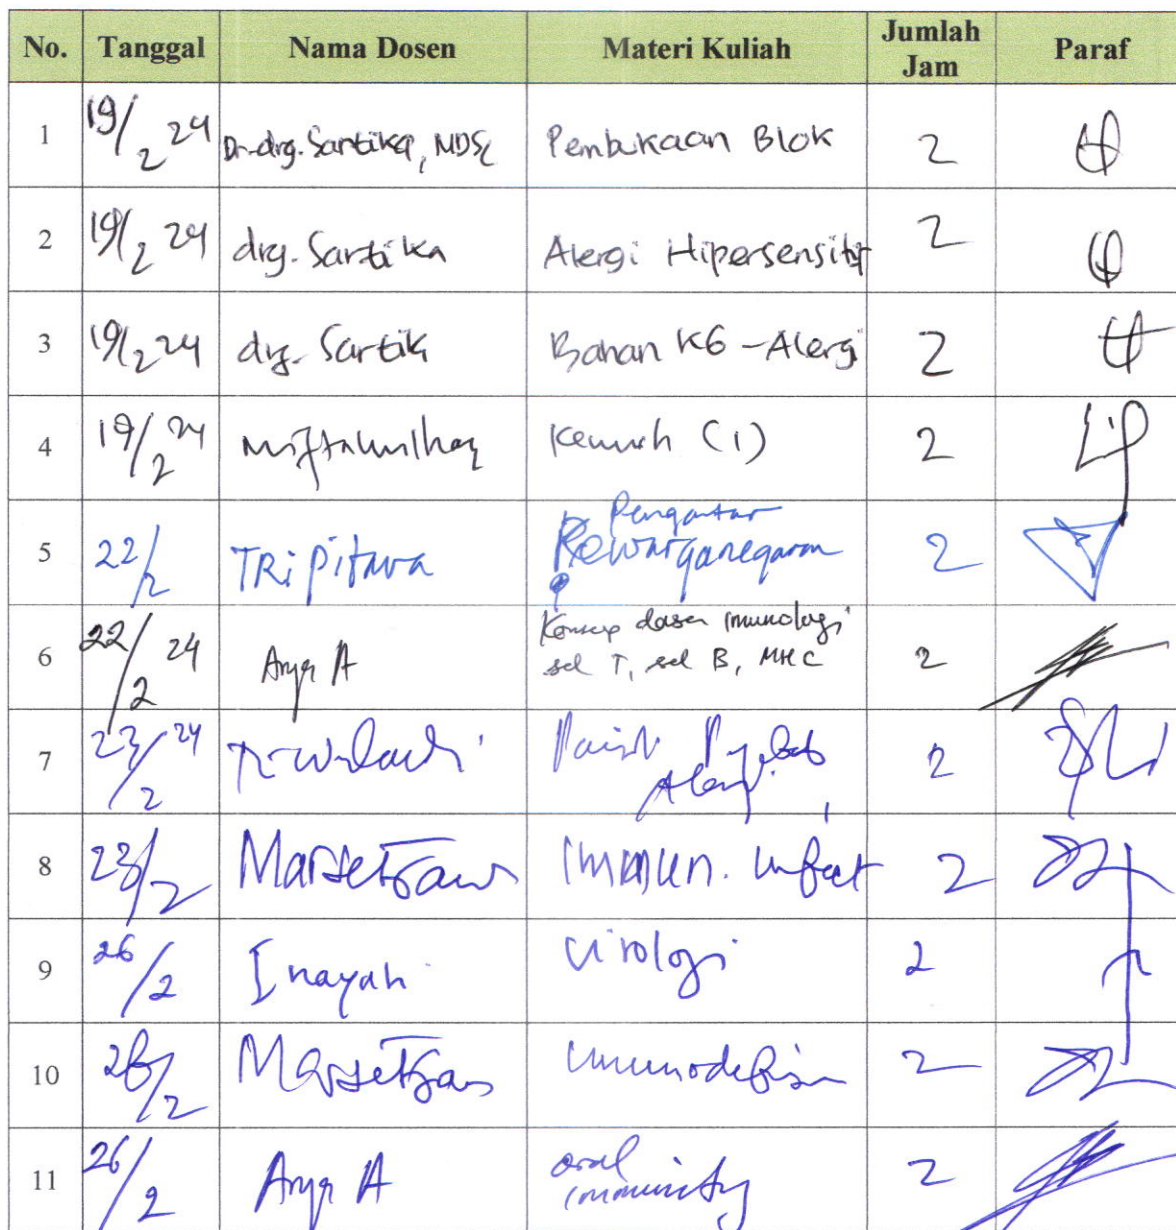 No. Tanggal Nama Dosen Materi Kuliah Jumlah Jam Paraf
1 19/2 24 Dr. drg. Sartika, MDSc Pembukaan Blok 2
2 19/2 24 drg. Sartika Alergi Hipersensitif 2
3 19/2 24 drg. Sartik Bahan KG - Alergi 2
4 19/2 24 (1) 2
5 22/2 TRipitara Pengantar Kewarganegaraan 2
6 22/2 24 Arya A Konsep dasar imunologi
sel T, sel B, MHC 2
7 23/2 24 2
8 23/2 Imun. Infect 2
9 26/2 Inayah Virologi 2
10 26/2 2
11 26/2 Arya A oral
immunity 2